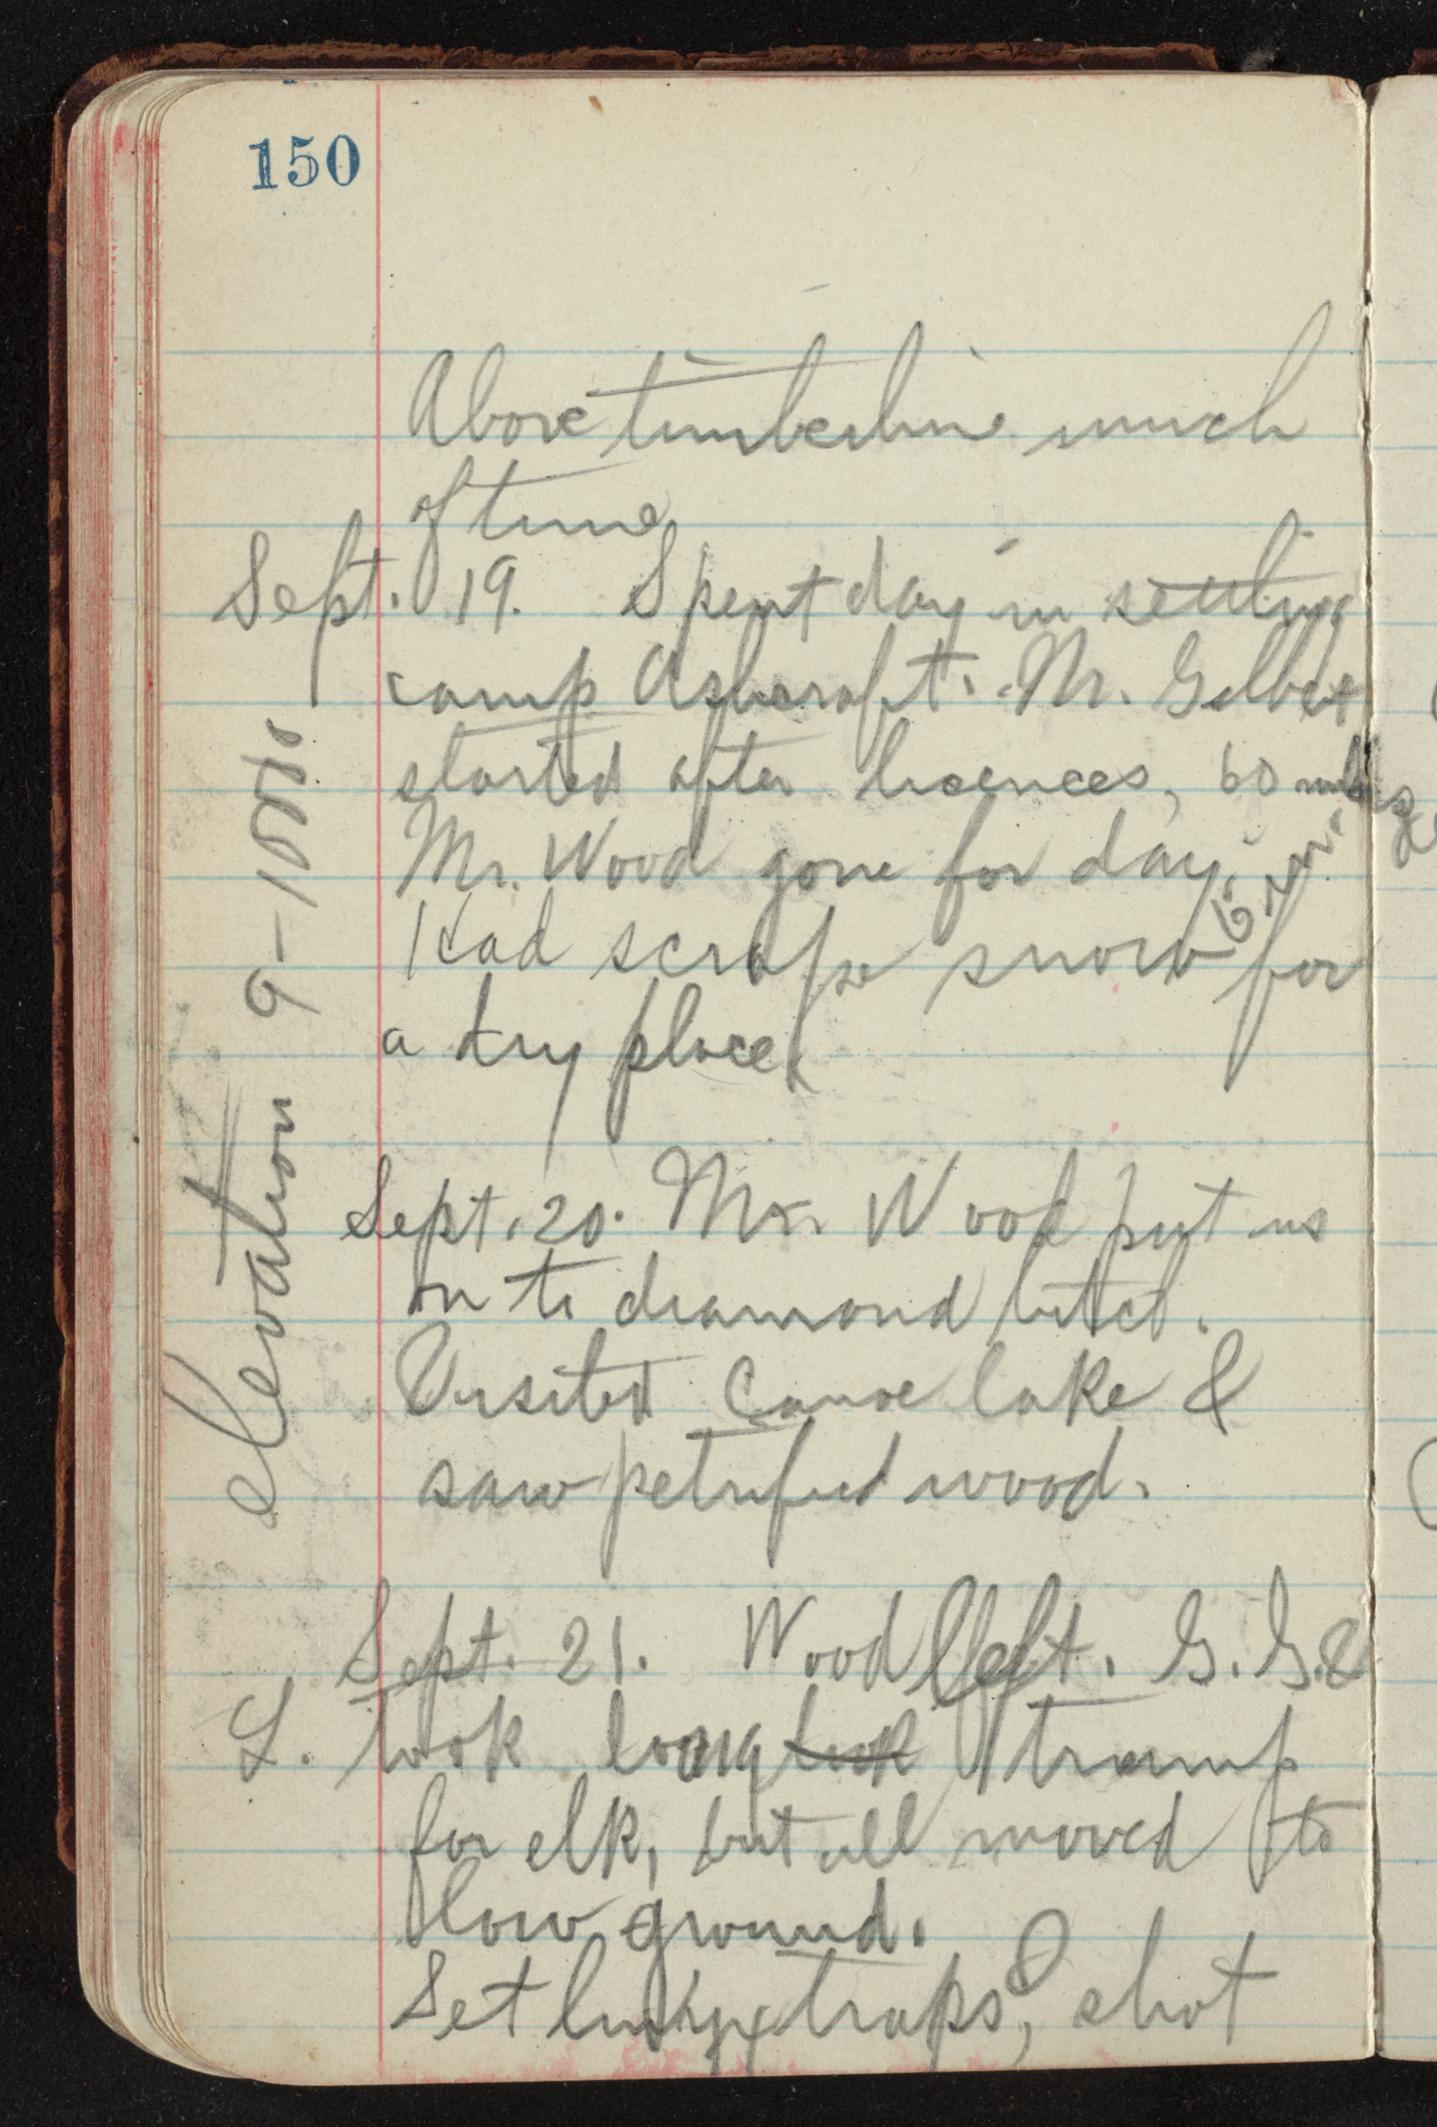 150
Above timberline much
of time
Sept. 19. Spent day in setting
camp Ashcroft. Mr. Gilbert
started after licences, 60 miles
Mr. Wood gone for day.
Had scrape snow 6 in. for
a dry place
Sept. 20. Mr. Wood put us
on to diamond hitch.
Visited Canoe lake &
saw petrified wood.
Sept. 21. Wood left. G. G. &
L. took long took tramp
for elk, but all moved to
low ground.
Set traps, shot
elevation 9-10000